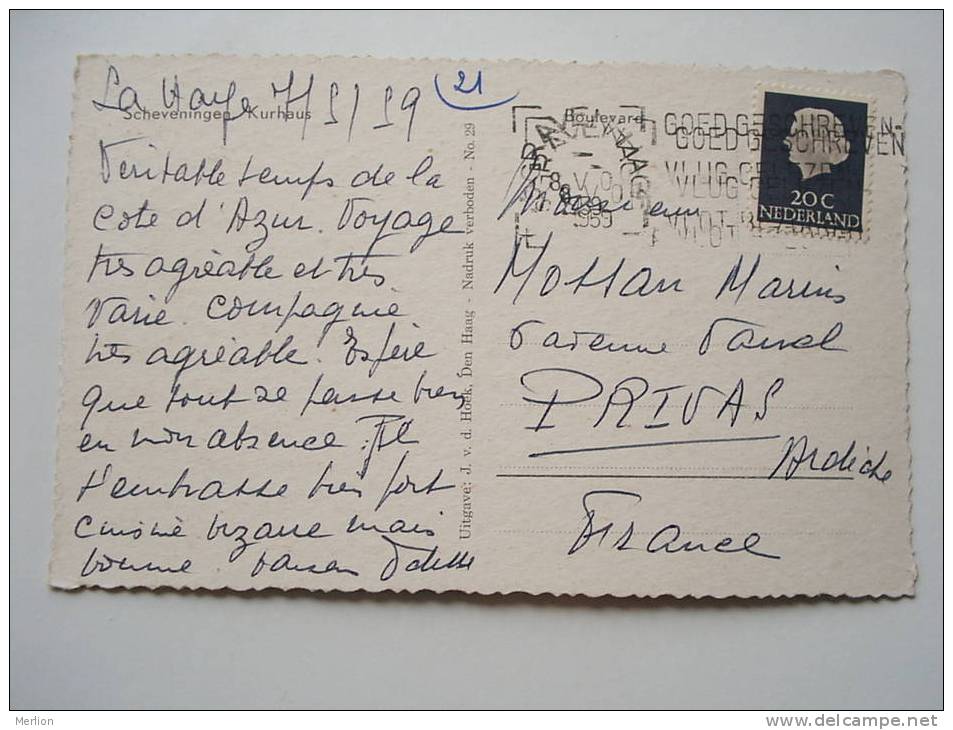 La Haye 7/5/59
21
Scheveningen Kurhaus
Boulevard
Véritable temps de la
Cote d'Azur. Voyage
très agréable et très
varié. Compagnie
très agréable. Espère
que tout se passe bien
en mon absence. Je
t'embrasse très fort
cuisine bizarre mais
bonne Odette
Uitgave: J. v. d. Hoek, Den Haag - Nadruk verboden - No. 29
GOED GESCHREVEN-
GOED GESCHREVEN
VLUG
VLUG
1959
20 C
NEDERLAND
Monsieur
Mottan Marius
PRIVAS
Ardèche
France
Merlion
http://www.delcampe.net